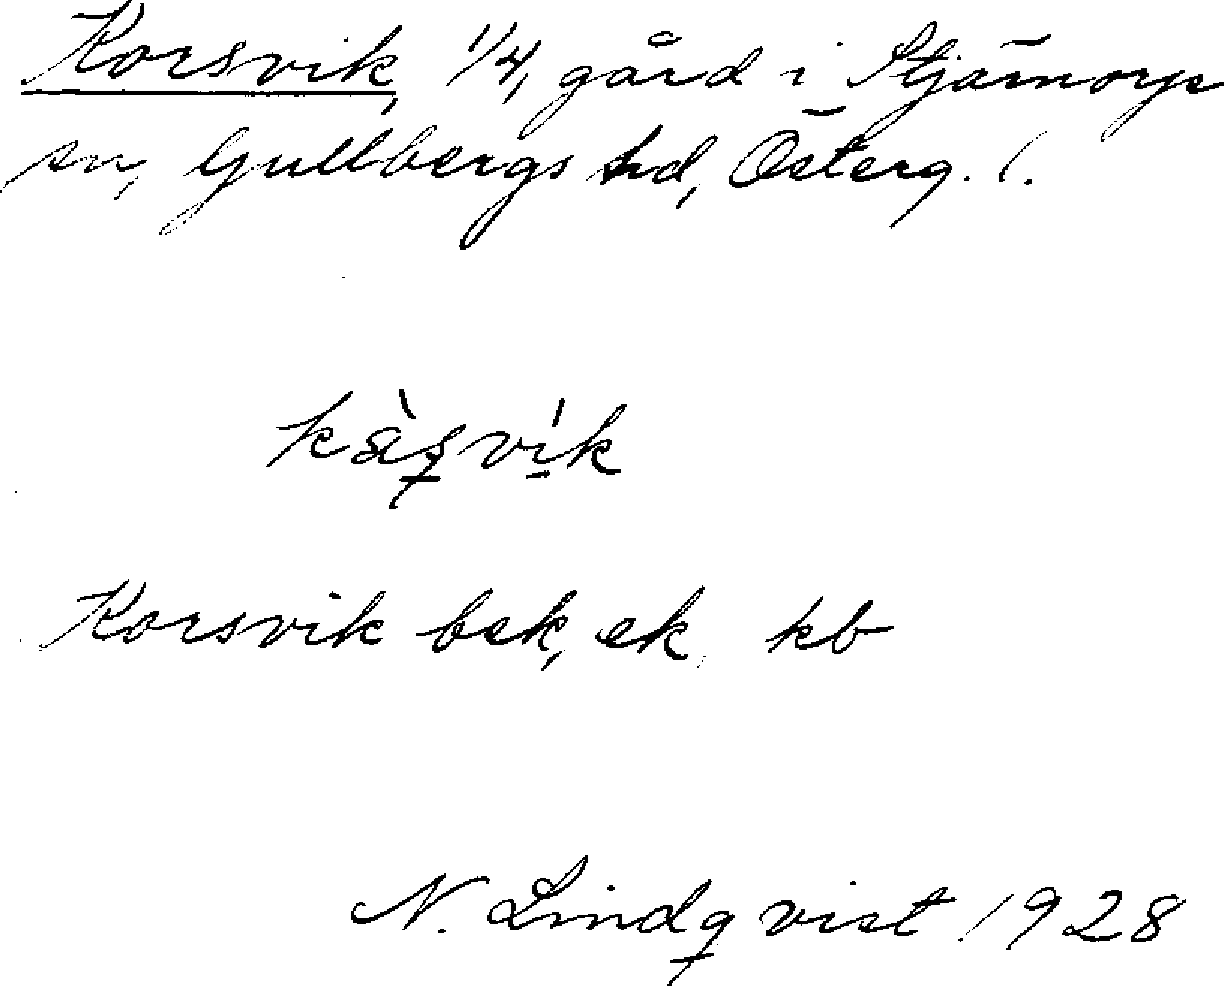 Korsvik, 1/4, gård i Stjärnorps
sn, Gullbergs hd, Österg. l.
kàs̠ví̠k
Korsvik bek, ek, kb
N. Lindqvist 1928